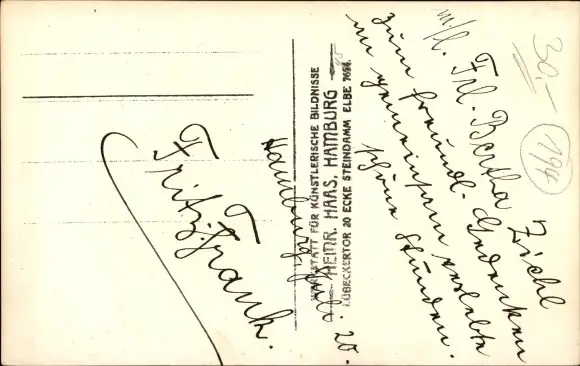 m/l. Frl. Bertha Zickl
zum freundl. Gedenken
an gemeinsam verlebte
schöne Stunden.
Fritz Frank.
Hamburg 20.
WERKSTATT FÜR KÜNSTLERISCHE BILDNISSE
HEINR. HAAS, HAMBURG
LÜBECKERTOR 20 ECKE STEINDAMM ELBE
30.-
194